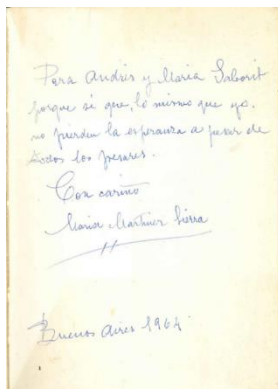 Para Andrés y María Saborit
porque sé que, lo mismo que yo,
no pierden la esperanza a pesar de
todos los pesares.
Con cariño
María Martínez Sierra
Buenos Aires 1964